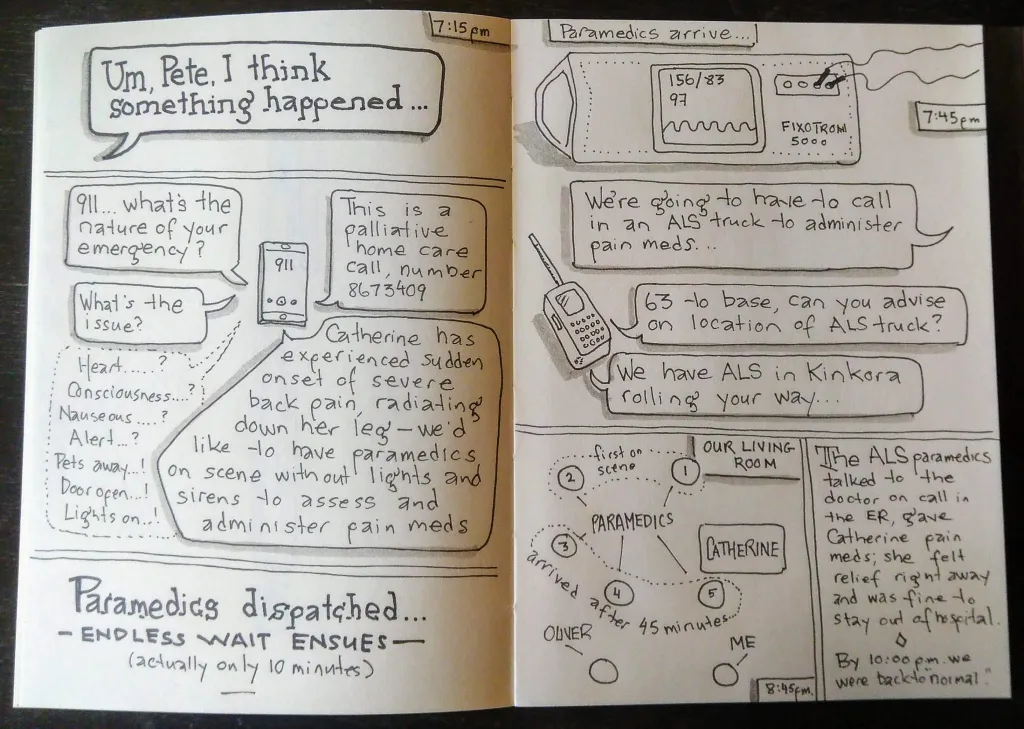 7:15pm
Um, Pete, I think
something happened...
911... what's the
nature of your
emergency?
This is a
palliative
home care
call, number
8673409
911
What's the
issue?
Heart......?
Consciousness....?
Nauseous.....?
Alert...?
Pets away...!
Door open...!
Lights on..!
Catherine has
experienced sudden
onset of severe
back pain, radiating
down her leg – we'd
like to have paramedics
on scene without lights and
sirens to assess and
administer pain meds
Paramedics dispatched...
– ENDLESS WAIT ENSUES –
(actually only 10 minutes)
Paramedics arrive...
156/83
97
FIXOTROM
5000
7:45pm
We're going to have to call
in an ALS truck to administer
pain meds...
63 to base, can you advise
on location of ALS truck?
We have ALS in Kinkora
rolling your way...
OUR LIVING
ROOM
first on
scene
1
2
PARAMEDICS
CATHERINE
3
4
5
arrived after 45 minutes
OLIVER
ME
8:45pm.
The ALS paramedics
talked to the
doctor on call in
the ER, gave
Catherine pain
meds; she felt
relief right away
and was fine to
stay out of hospital.
By 10:00 p.m. we
were back to "normal."